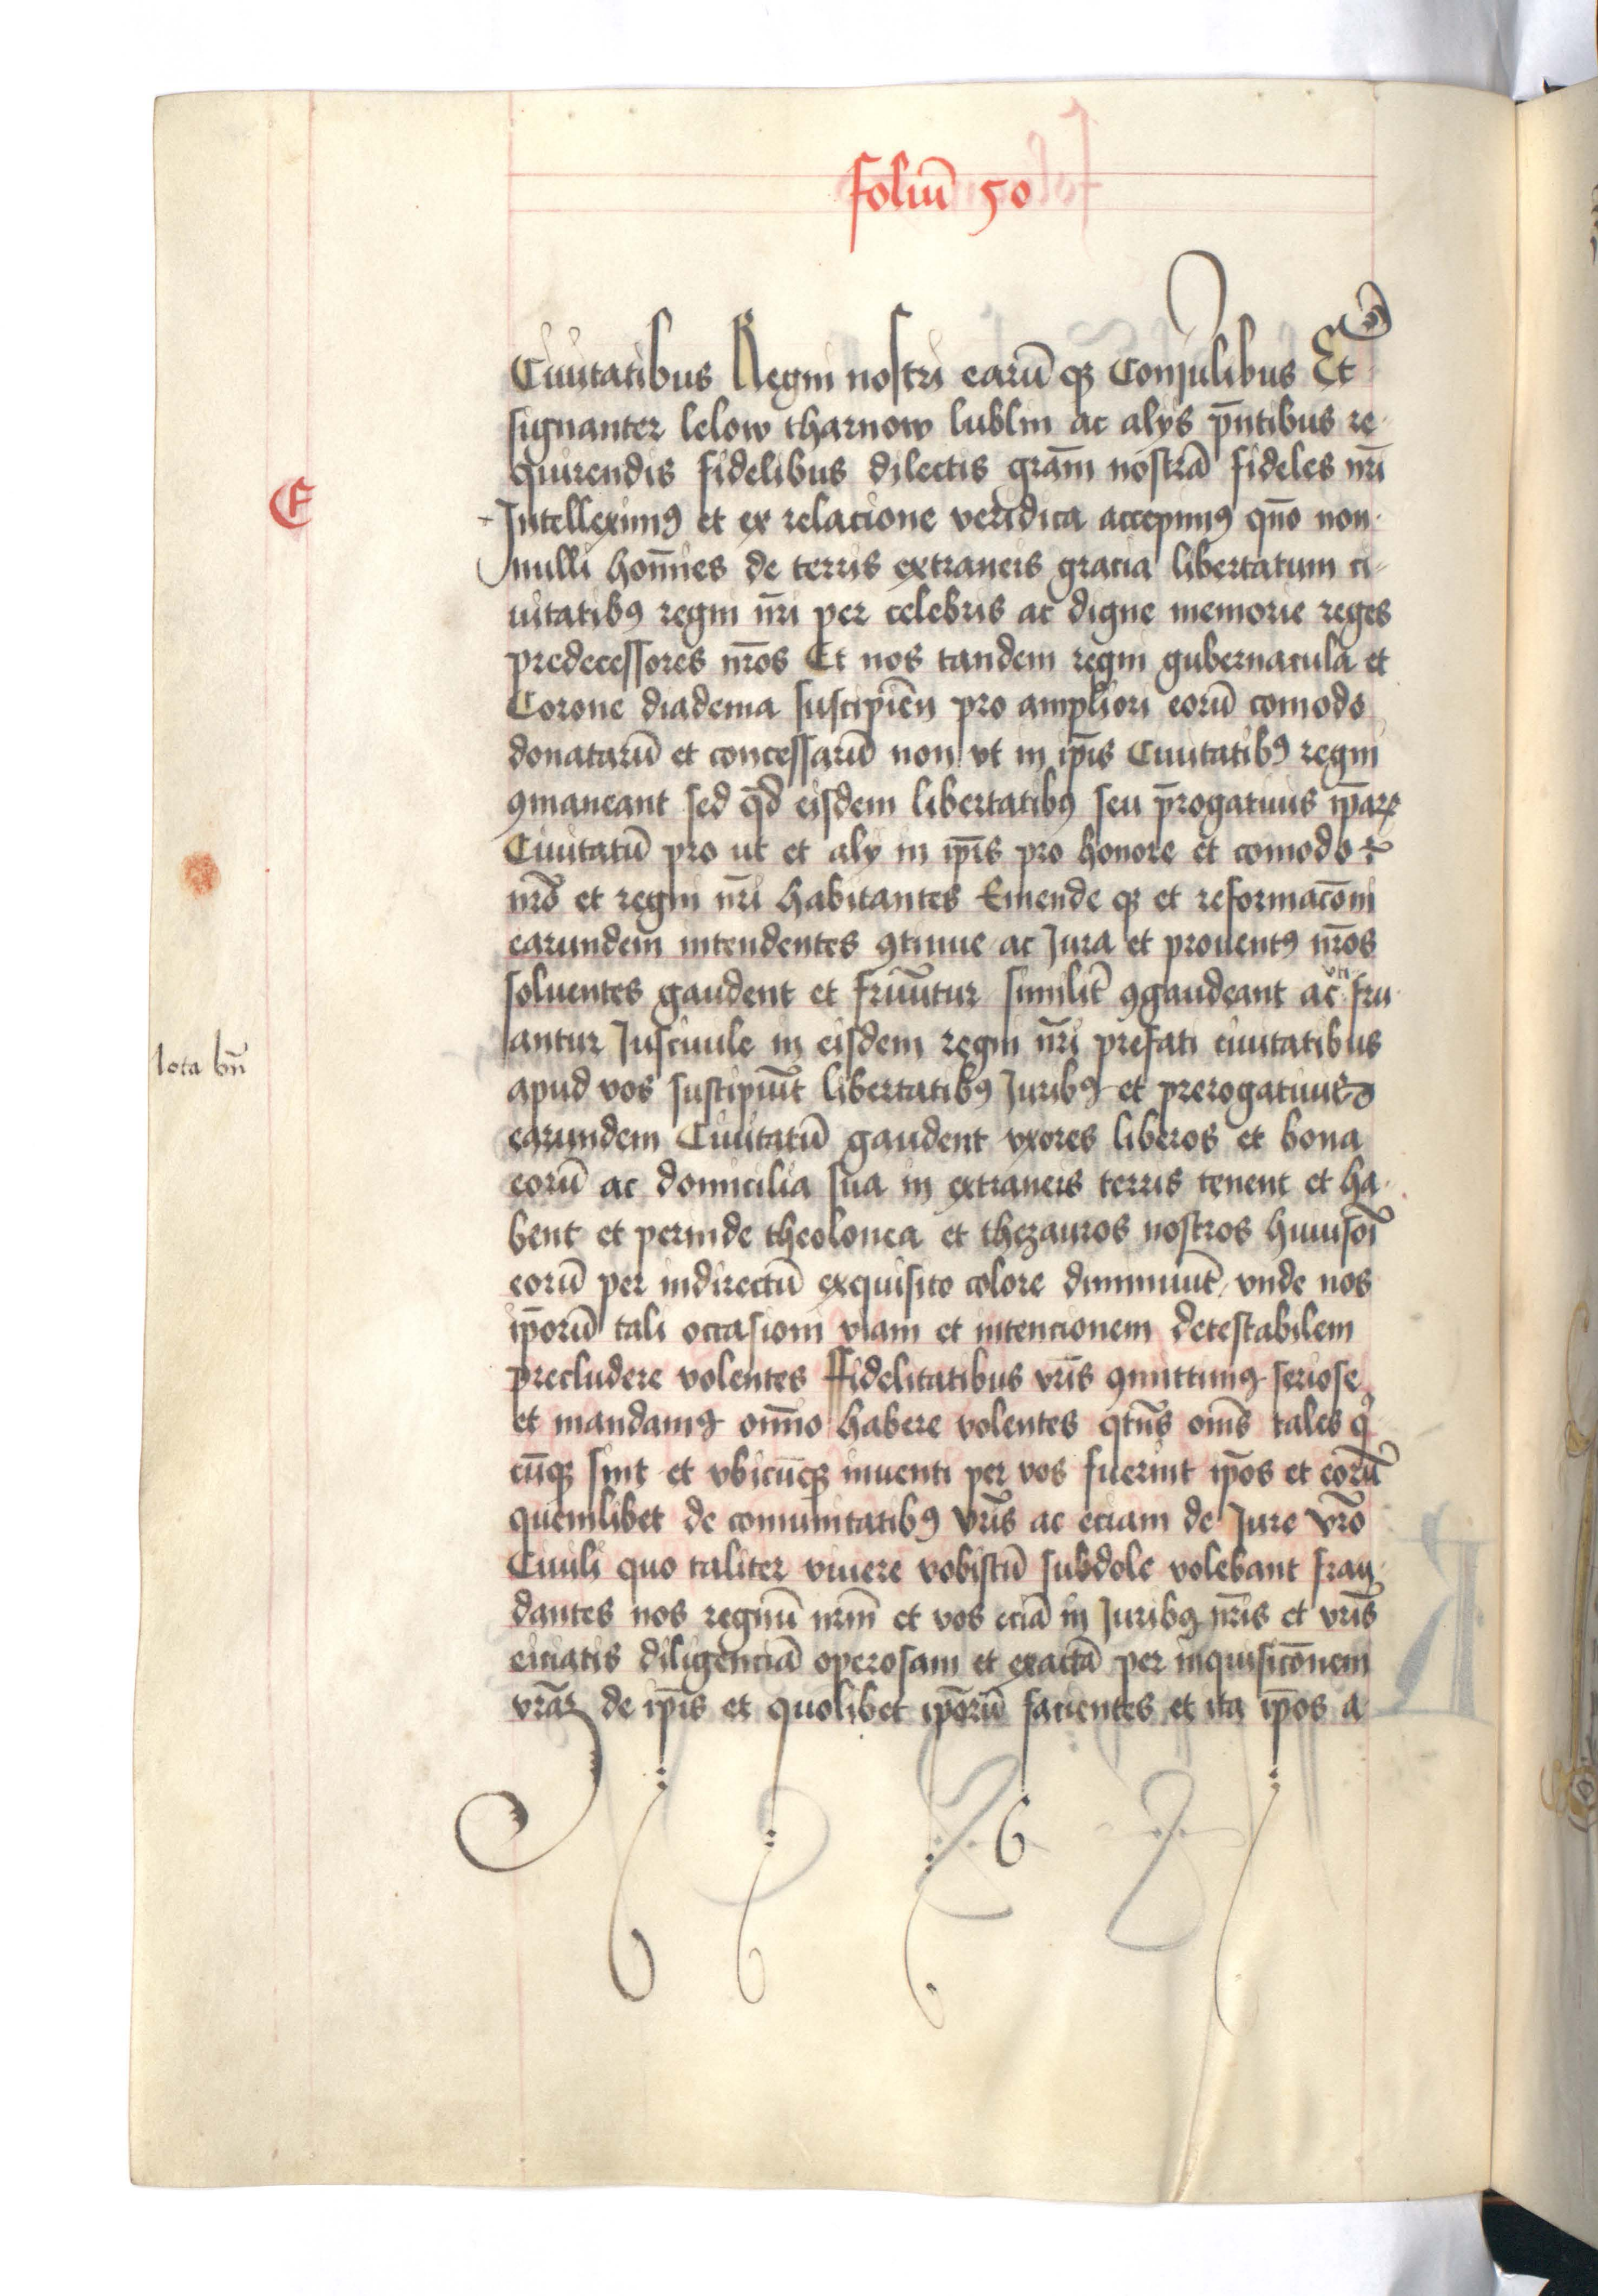 foliū 50
Ciuitatibus Regni nostri earū qꝫ Consulibus Et
signanter lelow tharnow lublin ac alys p̄ntibus re
quirendis fidelibus dilectis grām nostrā fideles nr̄i
E
Intelleximꝰ et ex relacione veridica accepimꝰ quō non
nulli hoīnes de terris extraneis gracia libertatum ci
uitatibꝰ regni nr̄i per celebris ac digne memorie reges
predecessores nr̄os Et nos tandem regni gubernacula et
Corone diadema suscipiēn pro ampliori eorū comodo
donatarū et concessarū non vt in ip̄is Ciuitatibꝰ regni
ꝯmaneant sed qd̄ eisdem libertatibꝰ seu p̄rogatiuis ip̄aꝝ
Ciuitatū pro ut et aly in ip̄is pro honore et comodo
nr̄o et regni nr̄i habitantes Emende qꝫ et reformacōni
earundem intendentes ꝯtinue ac Jura et prouentꝰ nr̄os
soluentes gaudent et friuūtur similit̄ ꝯgaudeant ac vti fru
antur Jusciuile in eisdem regni nr̄i prefati ciuitatibus
lota bn̄
apud vos suscipiūt libertatibꝰ Juribꝰ et prerogatiuis
earundem Ciuitatū gaudent vxores liberos et bona
eorū ac domicilia sua in extraneis terris tenent et ha
bent et perinde theolonea et thezauros nostros huiusoī
eorū per indirectū exquisito colore diminuūt vnde nos
ip̄orū tali occasioni viam et intencionem detestabilem
precludere volentes Ffidelitatibus vr̄is ꝯmittimꝰ seriose
et mandamꝰ om̄no habere volentes qtn̄s om̄s tales q
cūqꝫ sint et vbicūqꝫ inuenti per vos fuerint ip̄os et eorū
quemlibet de comunitatibꝰ vr̄is ac eciam de Jure vr̄o
Ciuili quo taliter viuere vobiscū subdole volebant frau
dantes nos regnū nrm̄ et vos eciā in Juribꝰ nr̄is et vr̄is
eiciatis diligenciā operosam et exactā per inquisicōnem
vrāꝝ de ip̄is et quolibet ip̄orū facientes et ita ip̄os a